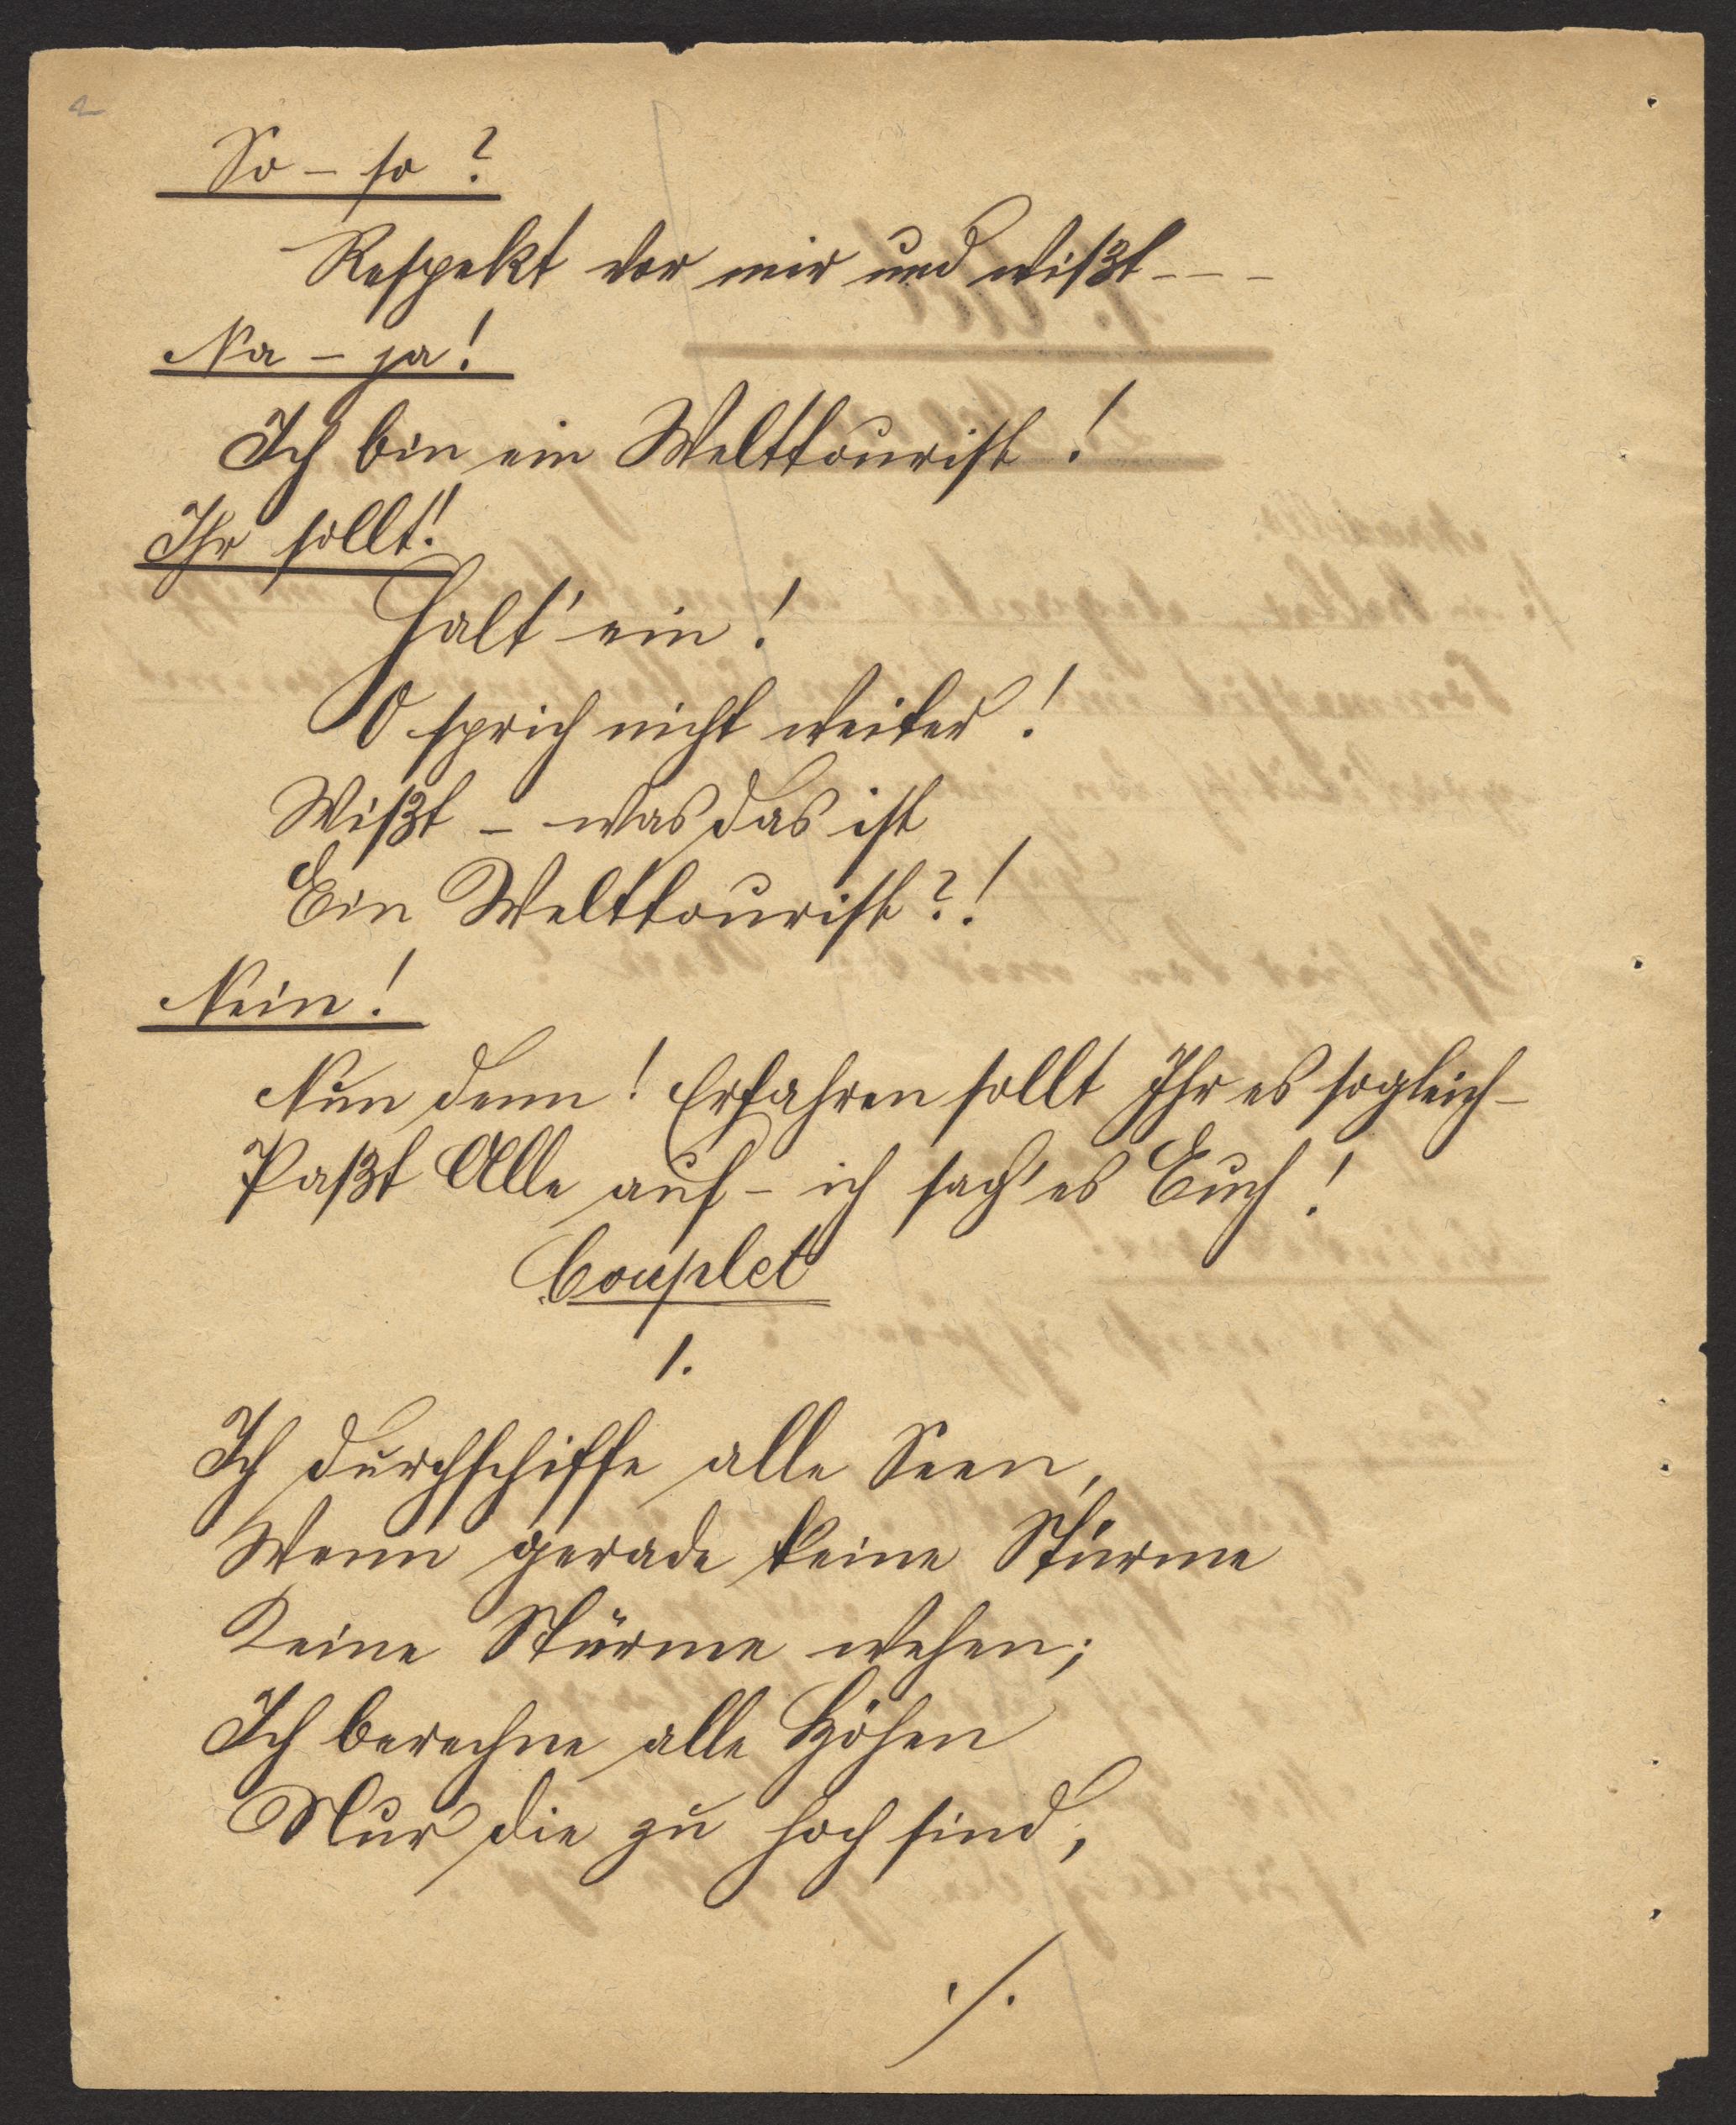 2
So – so ?
Respekt vor mir und wißt – – –
Na – ja !
Ich bin ein Welttourist !
Ihr sollt !
Halt' ein !
O sprich nicht weiter !
Wißt – was das ist
Ein Welttourist ? !
Nein !
Nun denn ! Erfahren sollt Ihr es sogleich –
Paßt Alle auf – ich sag' es Euch !
Couplet
1.
Ich durchschiffe alle Seen,
Wenn gerade keine Stürme
Keine Stürme wehen ;
Ich berechne alle Höhen
Nur die zu hoch sind,
./.